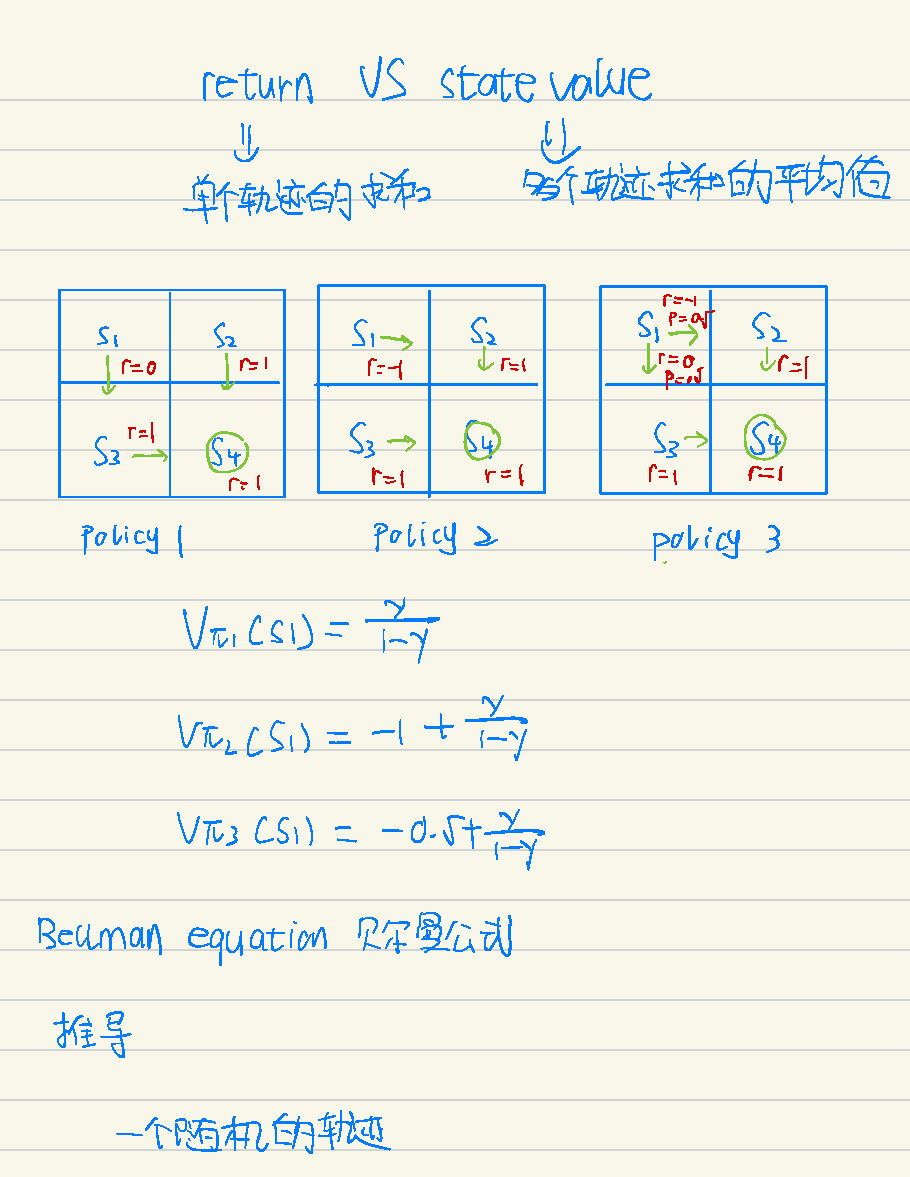 return VS state value
⇓ ⇓
单个轨迹的求和 多个轨迹求和的平均值
S1 r=0 S2 r=1
S3 r=1 → S4 r=1
S1 → r=-1 S2 r=1
S3 → r=1 S4 r=1
S1 r=-1 p=0.5 → r=0 p=0.5 S2 r=1
S3 → r=1 S4 r=1
Policy 1 Policy 2 policy 3
Vπ1(S1) = γ/(1-γ)
Vπ2(S1) = -1 + γ/(1-γ)
Vπ3(S1) = -0.5 + γ/(1-γ)
Bellman equation 贝尔曼公式
推导
一个随机的轨迹